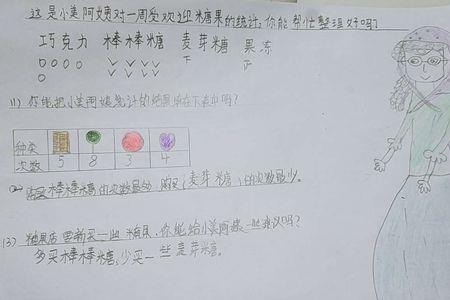 这是小美阿姨对一周受欢迎糖果的统计,你能帮忙整理好吗?
巧克力 棒棒糖 麦芽糖 果冻
(1) 你能把小美阿姨统计的结果填在下表中吗?
种类
次数 5 8 3 4
(2) 购买棒棒糖的次数最多,购买(麦芽糖)的次数最少。
(3) 糖果店要新买一些糖果,你能给小美阿姨一些建议吗?
多买棒棒糖,少买一些麦芽糖。